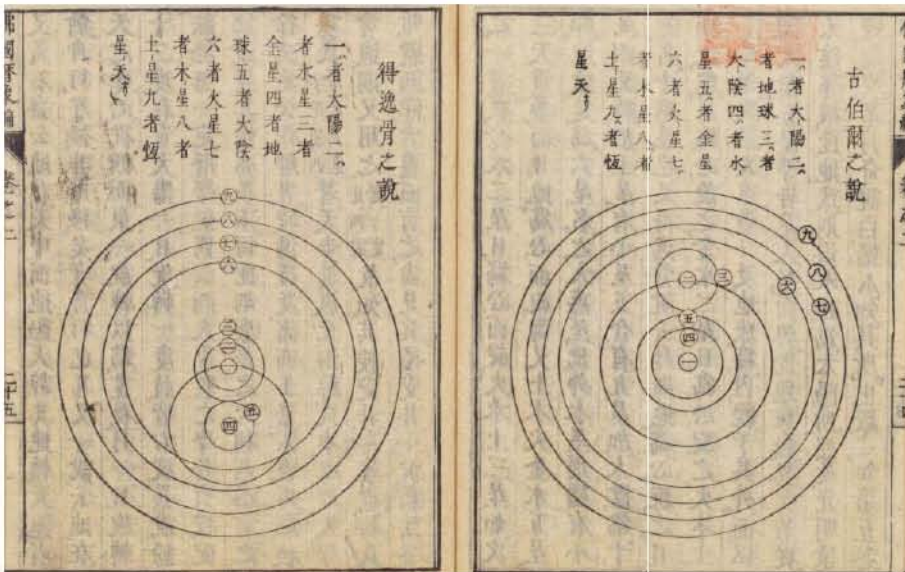 古伯爾之說
一者大陽二。
者地球三。者
大陰四。者水。
星五。者金星
六者火星七。
者木星八。者
土星九。者恆
星天
九
八
七
六
三
二
五
四
一
得逸骨之說
一者大陽二。
者水星三者
金星四者地
球五者大陰
六者火星七
者木星八者
土星九者恆
星天
九
八
七
六
三
二
一
五
四
佛國暦象編
卷之二
二十五